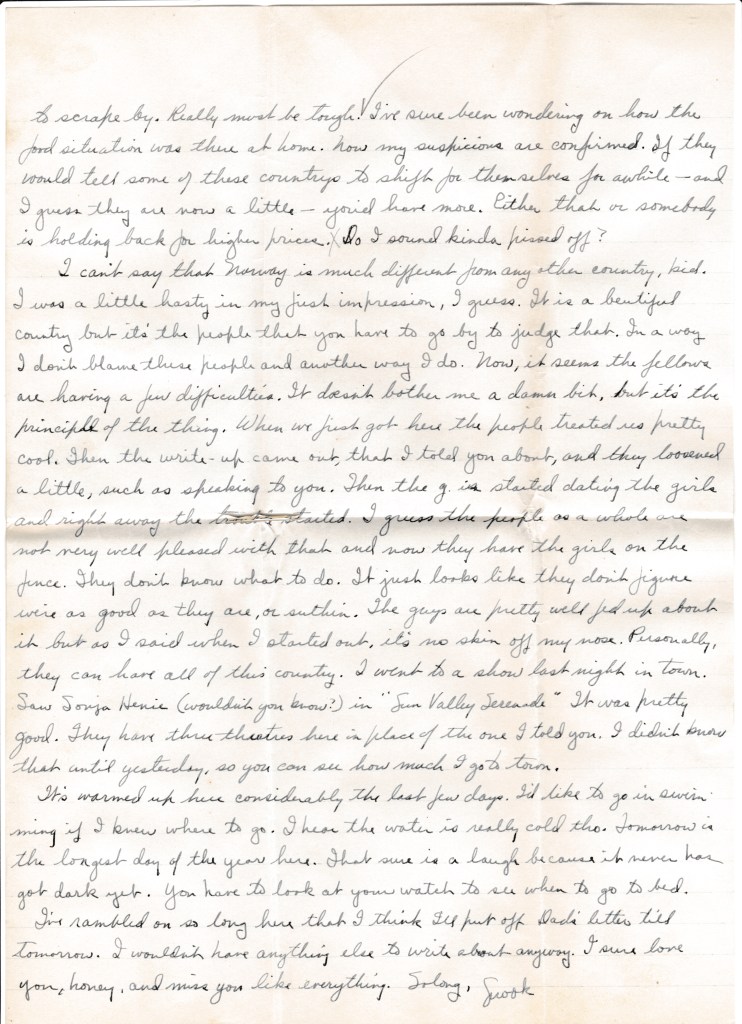 to scrape by. Really must be tough! I've sure been wondering on how the
food situation was there at home. Now my suspicions are confirmed. If they
would tell some of these countrys to shift for themselves for awhile — and
I guess they are now a little — you'd have more. Either that or somebody
is holding back for higher prices. Do I sound kinda pissed off?
I can't say that Norway is much different from any other country, kid.
I was a little hasty in my first impression, I guess. It is a beutiful
country but it's the people that you have to go by to judge that. In a way
I don't blame these people and another way I do. Now, it seems the fellows
are having a few difficulties. It doesn't bother me a damn bit, but it's the
principle of the thing. When we first got here the people treated us pretty
cool. Then the write-up came out, that I told you about, and they loosened
a little, such as speaking to you. Then the g.i.s started dating the girls
and right away the trouble started. I guess the people as a whole are
not very well pleased with that and now they have the girls on the
fence. They don't know what to do. It just looks like they don't figure
we're as good as they are, or suthin. The guys are pretty well fed up about
it but as I said when I started out, it's no skin off my nose. Personally,
they can have all of this country. I went to a show last night in town.
Saw Sonja Henie (wouldn't you know?) in "Sun Valley Serenade" It was pretty
good. They have three theatres here in place of the one I told you. I didn't know
that until yesterday, so you can see how much I go to town.
It's warmed up here considerably the last few days. I'd like to go in swim-
ming if I knew where to go. I hear the water is really cold tho. Tomorrow is
the longest day of the year here. That sure is a laugh because it never has
got dark yet. You have to look at your watch to see when to go to bed.
I've rambled on so long here that I think I'll put off Dad's letter till
tomorrow. I wouldn't have anything else to write about anyway. I sure love
you, honey, and miss you like everything. So long,